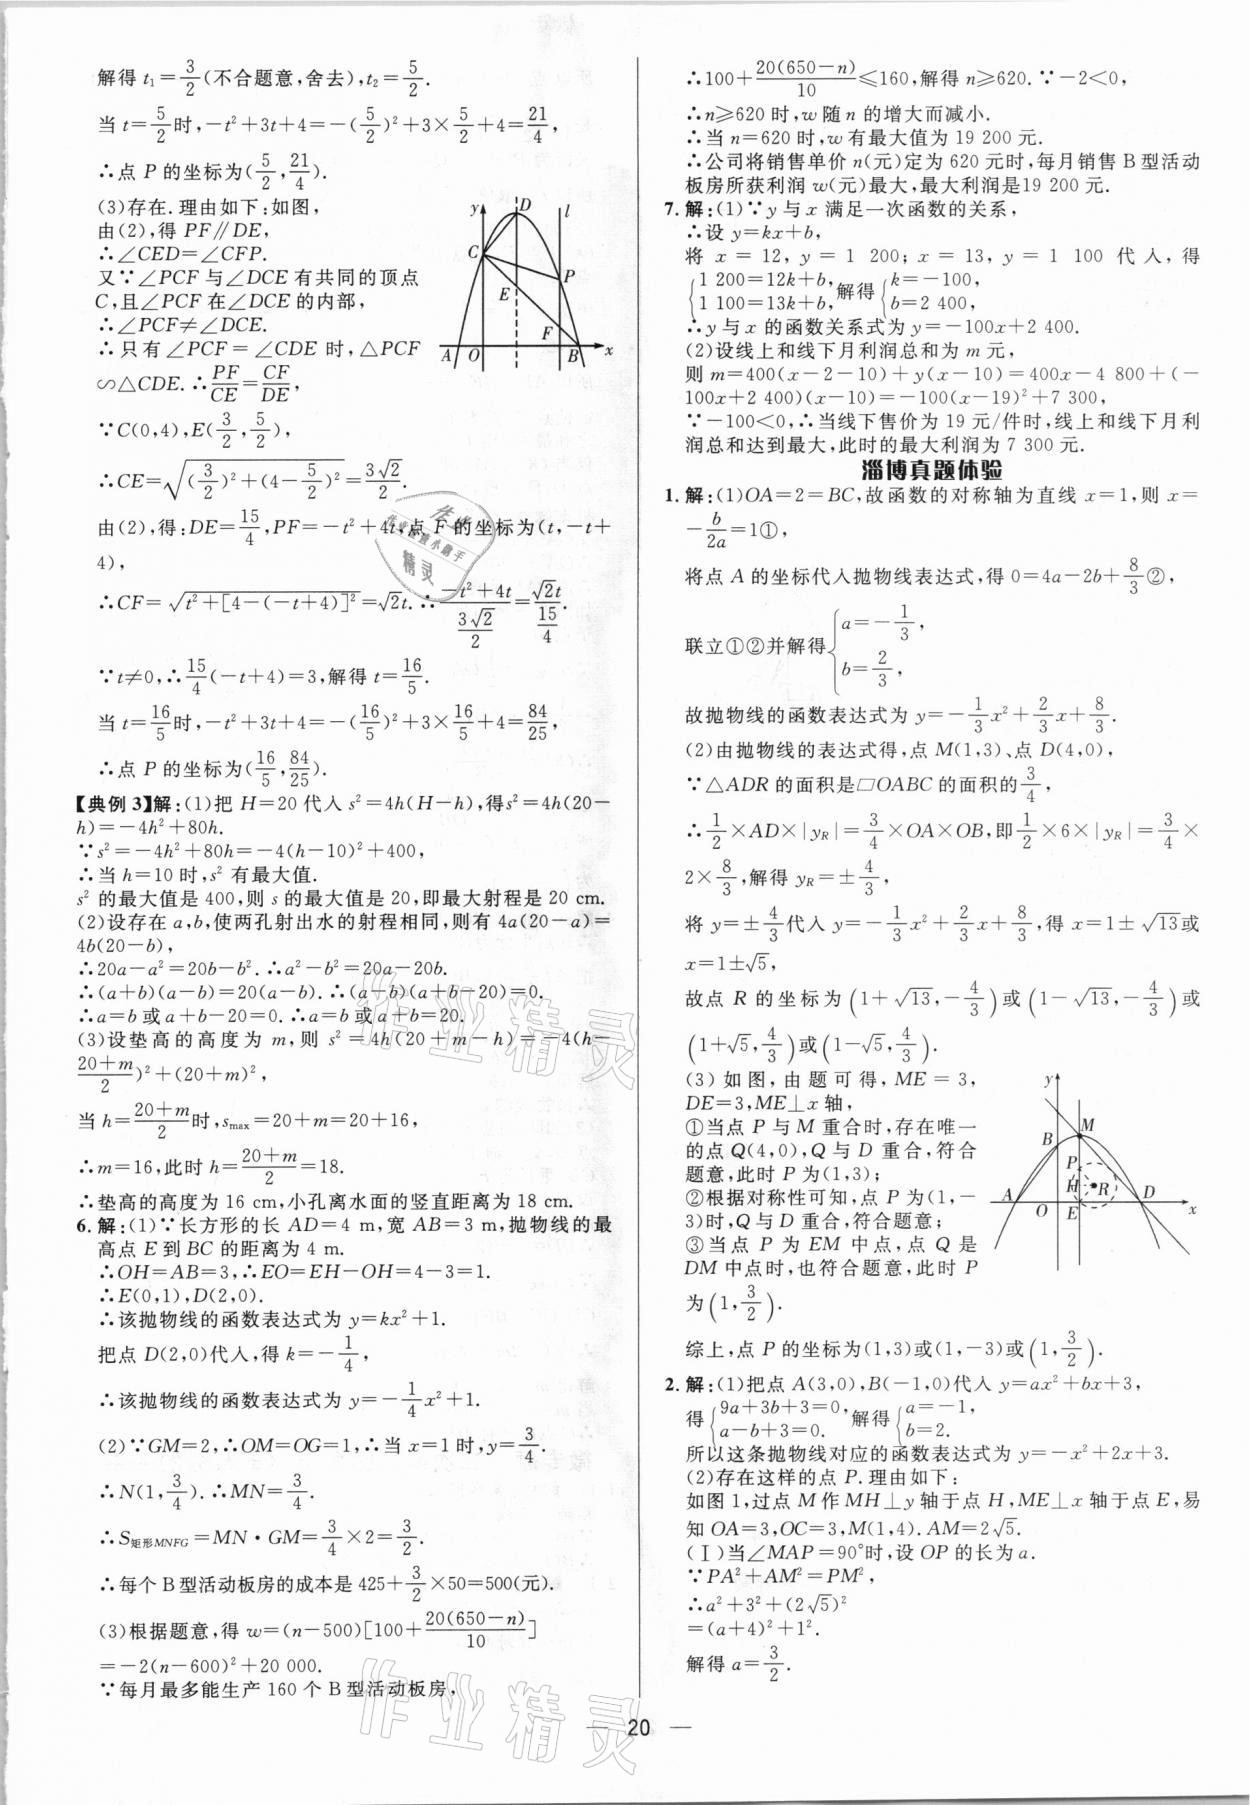 解得 t₁=3/2(不合题意,舍去),t₂=5/2.
当 t=5/2时,-t²+3t+4=-(5/2)²+3×5/2+4=21/4
∴点 P 的坐标为(5/2,21/4).
(3)存在.理由如下:如图,
由(2),得 PF∥DE,
∴∠CED=∠CFP.
又∵∠PCF 与∠DCE 有共同的顶点
C,且∠PCF 在∠DCE 的内部,
∴∠PCF≠∠DCE.
∴只有∠PCF=∠CDE 时,△PCF
∽△CDE.∴PF/CE=CF/DE,
∵C(0,4),E(3/2,5/2),
∴CE=√((3/2)²+(4-5/2)²)=3√2/2
由(2),得:DE=15/4,PF=-t²+4t,点 F 的坐标为(t,-t+
4),
∴CF=√(t²+[4-(-t+4)]²)=√2t.∴(-t²+4t)/(3√2/2)=√2t/(15/4).
∵t≠0,∴15/4(-t+4)=3,解得 t=16/5.
当 t=16/5时,-t²+3t+4=-(16/5)²+3×16/5+4=84/25,
∴点 P 的坐标为(16/5,84/25).
【典例 3】解:(1)把 H=20 代入 s²=4h(H-h),得s²=4h(20-
h)=-4h²+80h.
∵s²=-4h²+80h=-4(h-10)²+400,
∴当 h=10 时,s² 有最大值.
s² 的最大值是 400,则 s的最大值是 20,即最大射程是 20 cm.
(2)设存在 a,b,使两孔射出水的射程相同,则有 4a(20-a)=
4b(20-b),
∴20a-a²=20b-b².∴a²-b²=20a-20b.
∴(a+b)(a-b)=20(a-b).∴(a-b)(a+b-20)=0.
∴a=b 或 a+b-20=0.∴a=b或 a+b=20.
(3)设垫高的高度为 m,则 s²=4h(20+m-h)=-4(h-
(20+m)/2)²+(20+m)²,
当 h=(20+m)/2时,smax=20+m=20+16,
∴m=16,此时 h=(20+m)/2=18.
∴垫高的高度为 16 cm,小孔离水面的竖直距离为 18 cm.
6.解:(1)∵长方形的长 AD=4 m,宽 AB=3 m,抛物线的最
高点 E 到 BC 的距离为 4 m.
∴OH=AB=3,∴EO=EH-OH=4-3=1.
∴E(0,1),D(2,0).
∴该抛物线的函数表达式为 y=kx²+1.
把点 D(2,0)代入,得 k=-1/4,
∴该抛物线的函数表达式为 y=-1/4x²+1.
(2)∵GM=2,∴OM=OG=1,∴当 x=1 时,y=3/4.
∴N(1,3/4).∴MN=3/4.
∴S矩形MNFG=MN·GM=3/4×2=3/2.
∴每个 B型活动板房的成本是 425+3/2×50=500(元).
(3)根据题意,得 w=(n-500)[100+20(650-n)/10]
=-2(n-600)²+20 000.
∵每月最多能生产 160 个 B 型活动板房,
y D l
C
P
E
F
A O B x
∴100+20(650-n)/10≤160,解得 n≥620.∵-2<0,
∴n≥620 时,w 随 n 的增大而减小.
∴当 n=620 时,w 有最大值为 19 200 元.
∴公司将销售单价 n(元)定为 620 元时,每月销售 B 型活动
板房所获利润 w(元)最大,最大利润是19 200 元.
7.解:(1)∵y 与 x 满足一次函数的关系,
∴设 y=kx+b,
将 x=12,y=1 200;x=13,y=1 100 代入,得
{1 200=12k+b, 1 100=13k+b, 解得{k=-100, b=2 400,
∴y 与 x 的函数关系式为 y=-100x+2 400.
(2)设线上和线下月利润总和为 m 元,
则 m=400(x-2-10)+y(x-10)=400x-4 800+(-
100x+2 400)(x-10)=-100(x-19)²+7 300,
∵-100<0,∴当线下售价为 19 元/件时,线上和线下月利
润总和达到最大,此时的最大利润为 7 300 元.
淄博真题体验
1.解:(1)OA=2=BC,故函数的对称轴为直线 x=1,则 x=
-b/2a=1①,
将点 A 的坐标代入抛物线表达式,得 0=4a-2b+8/3②,
联立①②并解得{a=-1/3, b=2/3,
故抛物线的函数表达式为 y=-1/3x²+2/3x+8/3.
(2)由抛物线的表达式得,点 M(1,3)、点 D(4,0),
∵△ADR 的面积是▱OABC 的面积的3/4,
∴1/2×AD×|yR|=3/4×OA×OB,即1/2×6×|yR|=3/4×
2×8/3,解得 yR=±4/3,
将 y=±4/3代入 y=-1/3x²+2/3x+8/3,得 x=1±√13或
x=1±√5,
故点 R 的坐标为(1+√13,-4/3)或(1-√13,-4/3)或
(1+√5,4/3)或(1-√5,4/3).
(3)如图,由题可得,ME=3,
DE=3,ME⊥x 轴,
①当点 P 与 M 重合时,存在唯一
的点 Q(4,0),Q 与 D 重合,符合
题意,此时 P 为(1,3);
②根据对称性可知,点 P 为(1,-
3)时,Q 与 D 重合,符合题意;
③当点 P 为 EM 中点,点 Q 是
DM 中点时,也符合题意,此时 P
为(1,3/2).
y
M
B
P
H R
O E D x
综上,点 P 的坐标为(1,3)或(1,-3)或(1,3/2).
2.解:(1)把点 A(3,0),B(-1,0)代入 y=ax²+bx+3,
得{9a+3b+3=0, a-b+3=0. 解得{a=-1, b=2.
所以这条抛物线对应的函数表达式为 y=-x²+2x+3.
(2)存在这样的点 P.理由如下:
如图 1,过点 M 作 MH⊥y 轴于点 H,ME⊥x 轴于点 E,易
知 OA=3,OC=3,M(1,4).AM=2√5.
(Ⅰ)当∠MAP=90°时,设 OP 的长为 a.
∵PA²+AM²=PM²,
∴a²+3²+(2√5)²
=(a+4)²+1².
解得 a=3/2.
— 20 —
作业精灵
作业精灵